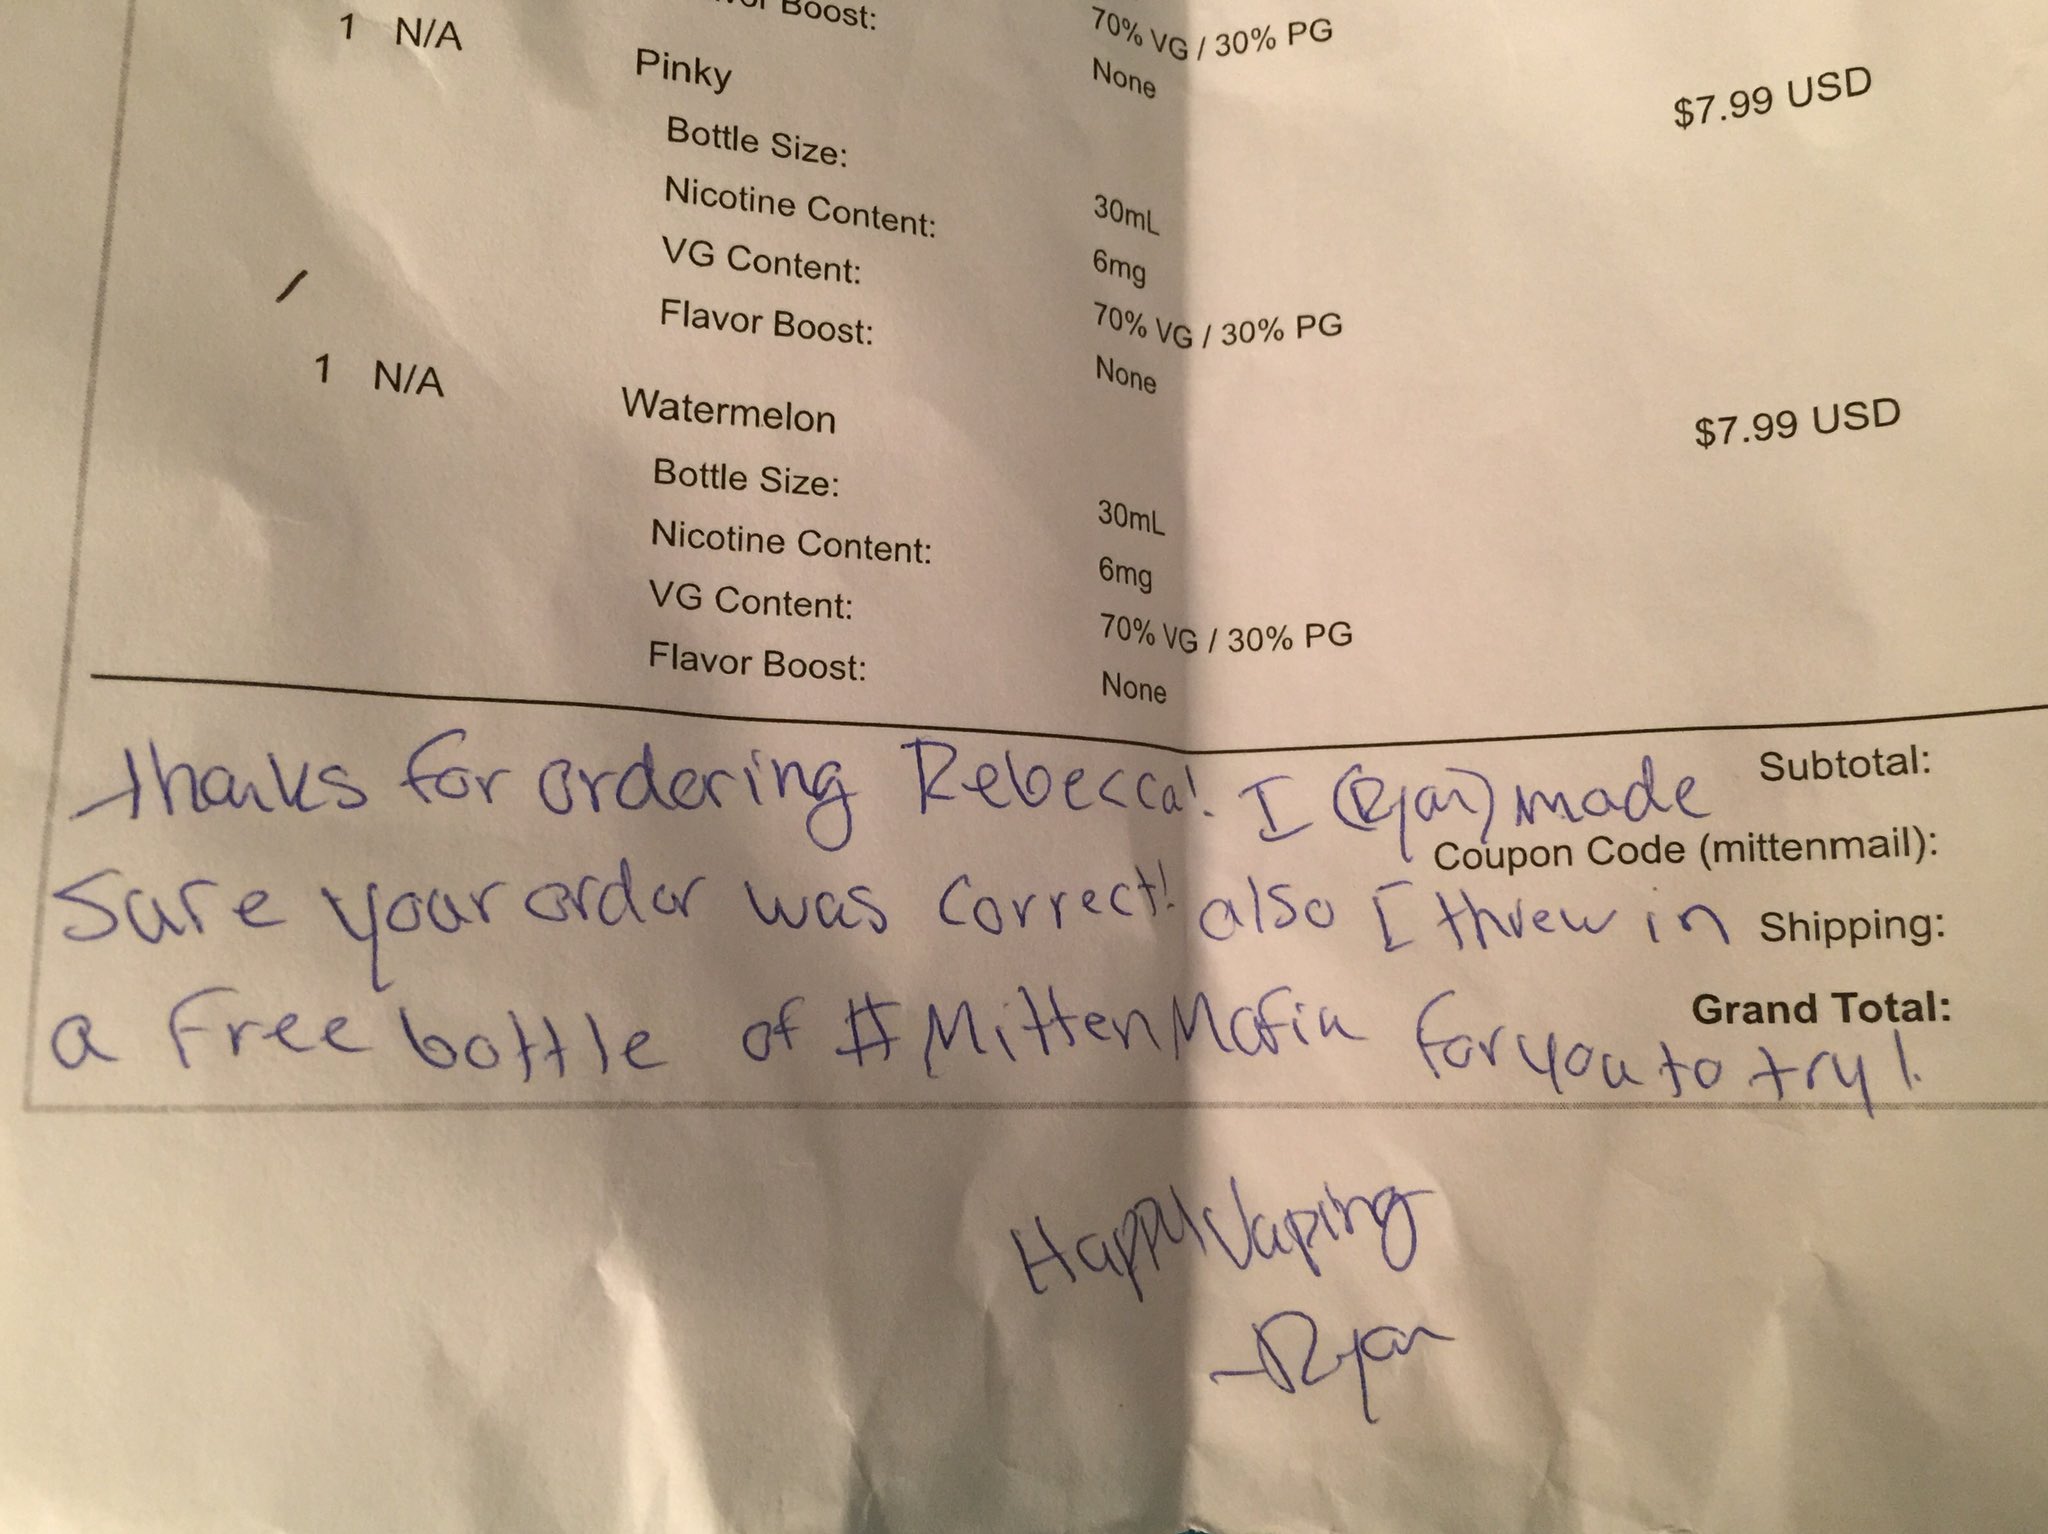 Boost:
70% VG / 30% PG
1 N/A
Pinky
None
$7.99 USD
Bottle Size:
30mL
Nicotine Content:
6mg
VG Content:
70% VG / 30% PG
Flavor Boost:
None
1 N/A
Watermelon
$7.99 USD
Bottle Size:
30mL
Nicotine Content:
6mg
VG Content:
70% VG / 30% PG
Flavor Boost:
None
Subtotal:
Coupon Code (mittenmail):
Shipping:
Grand Total:
Thanks for ordering Rebecca! I (Ryan) made
Sure your order was correct! also I threw in
a Free bottle of #MittenMafia for you to try!
Happy Vaping
-Ryan